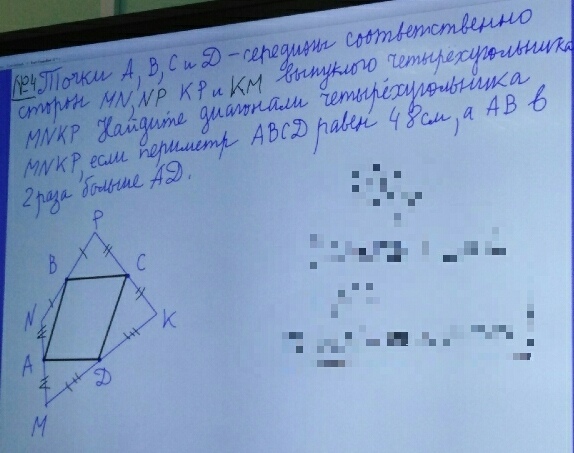 №4 Точки A, B, C и D – середины соответственно
сторон MN, NP KP и KM выпуклого четырёхугольника
MNKP. Найдите диагонали четырёхугольника
MNKP, если периметр ABCD равен 48 см, а AB в
2 раза больше AD.
P
B
C
N
K
A
D
M